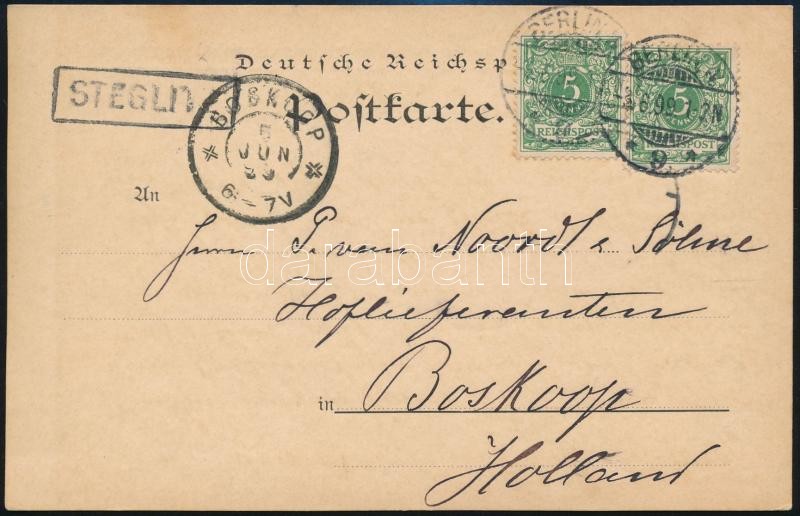 Deutsche Reichsp
Postkarte.
STEGLIN
BOSKOOP
5
JUN
99
6-7V
BERLIN
5
REICHSPOST
BERLIN
6.99.1-2N
5
REICHSPOST
* 9 *
An
Herrn P. van Noordt & Söhne
Hoflieferanten
in Boskoop
Holland
darabanth